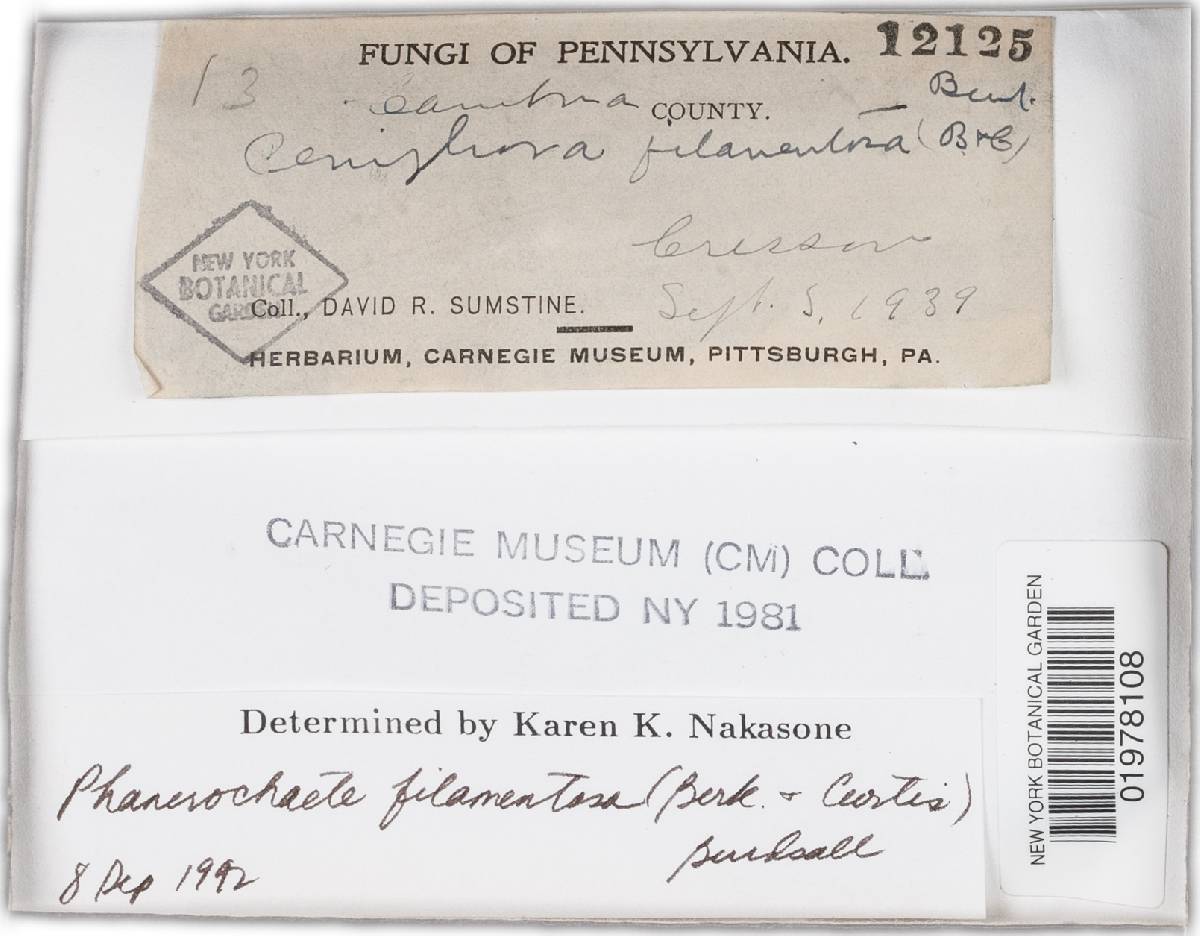 FUNGI OF PENNSYLVANIA. 12125
13 Cambria COUNTY.
Peniophora filamentosa (B & C) Burt.
Cresson
NEW YORK
BOTANICAL
GARDEN
Coll., DAVID R. SUMSTINE. Sept. 5, 1939
HERBARIUM, CARNEGIE MUSEUM, PITTSBURGH, PA.
CARNEGIE MUSEUM (CM) COLL.
DEPOSITED NY 1981
Determined by Karen K. Nakasone
Phanerochaete filamentosa (Berk. & Curtis)
Burdsall
8 Sep 1992
NEW YORK BOTANICAL GARDEN
01978108